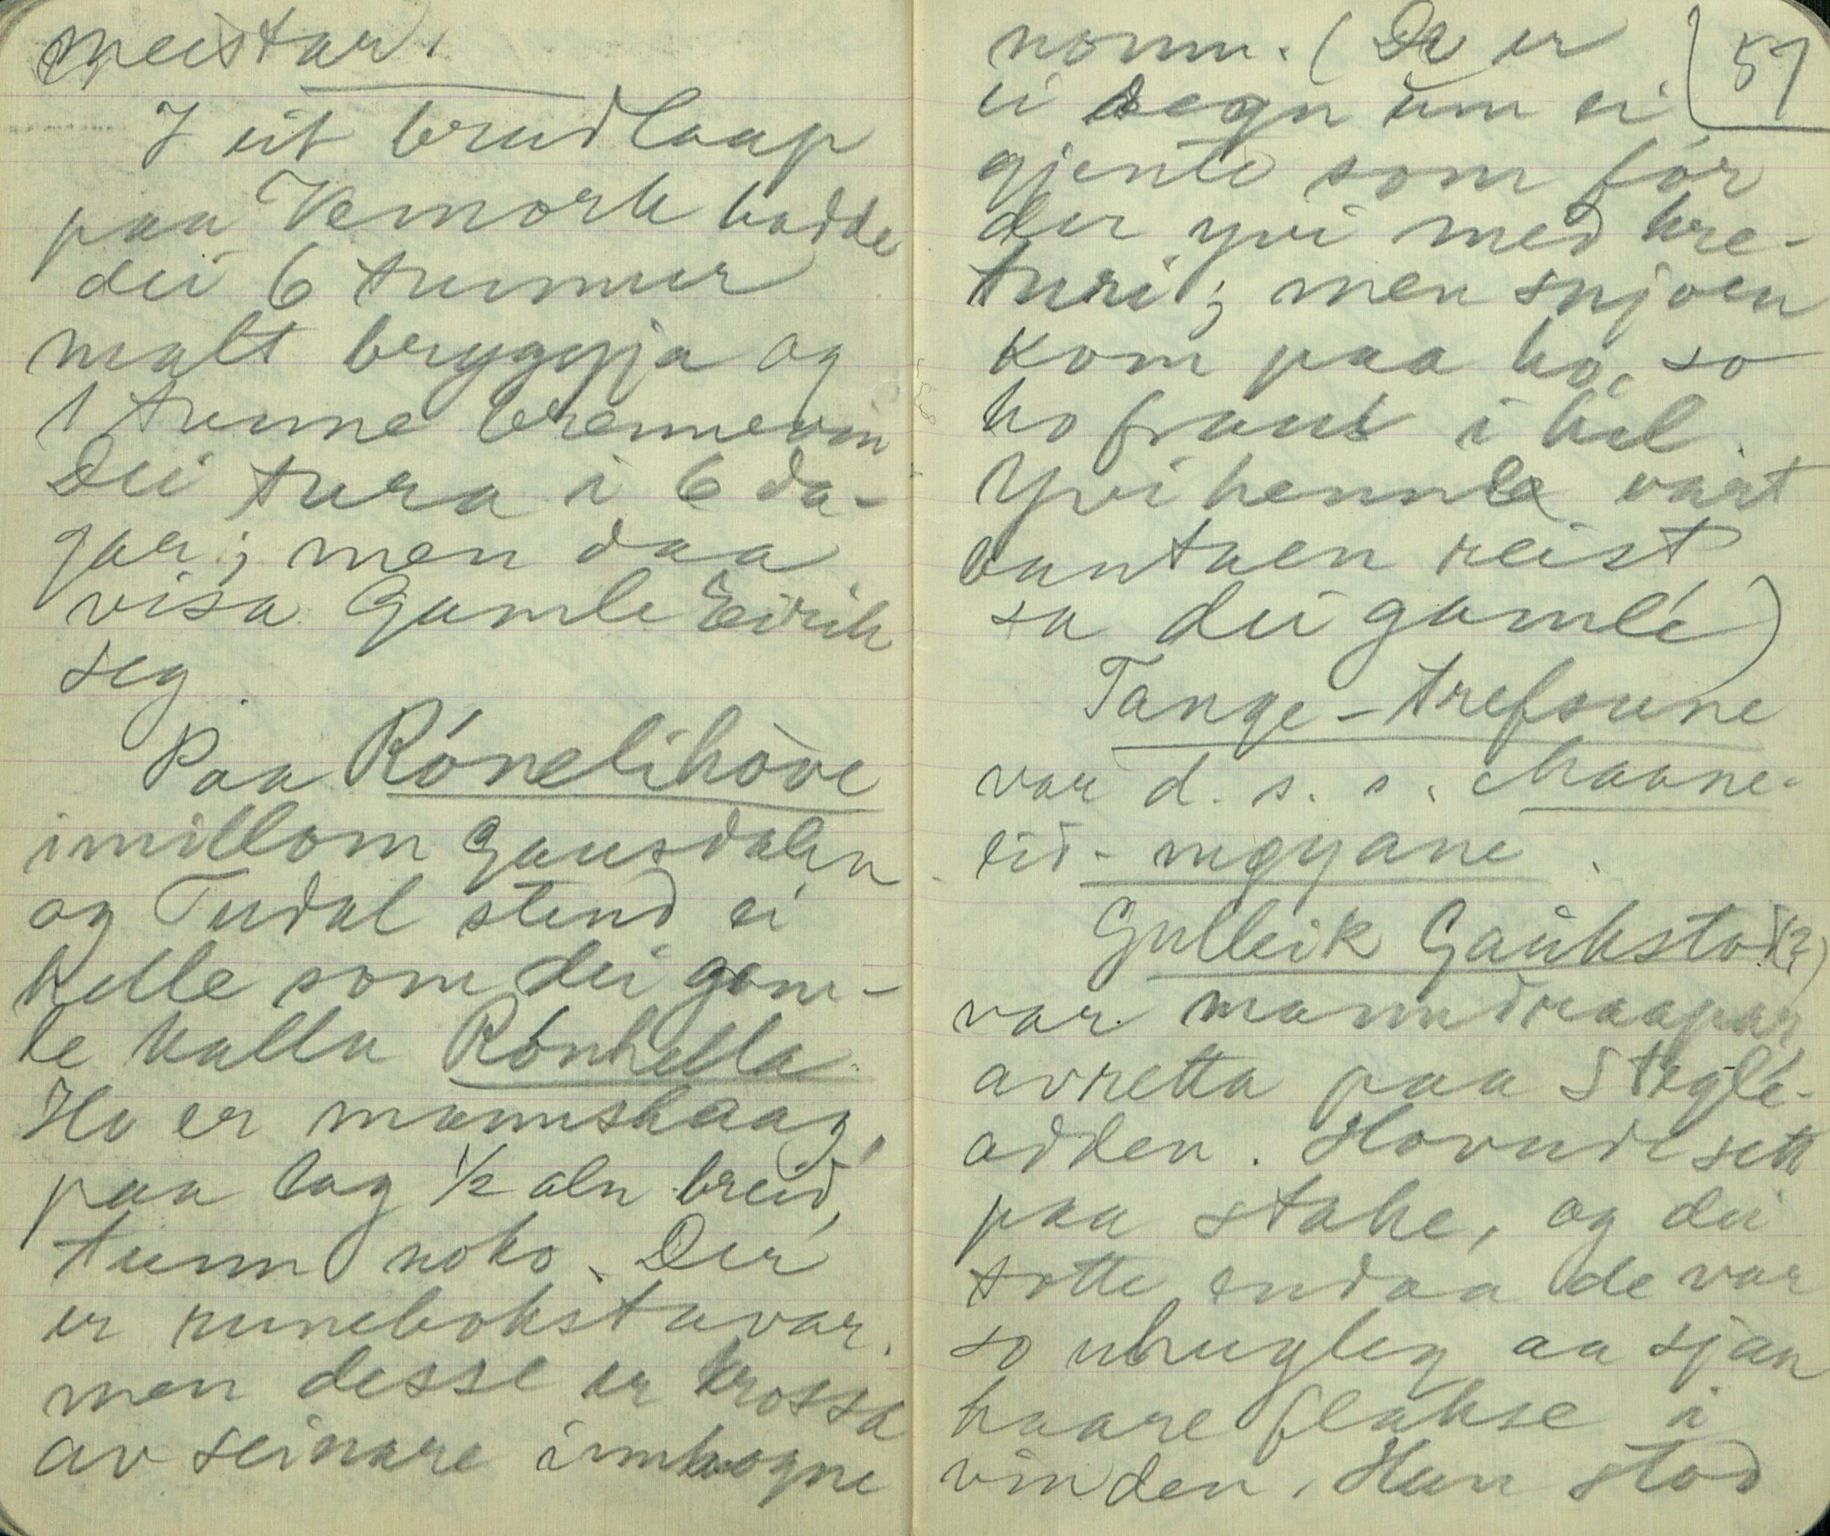 meistar.
I eit brudlaup
paa Vemork hadde
dei 6 tunnur
malt bryggja og
1 tunne brennevin
Dei tura i 6 da-
gar; men daa
visa Gamle Eirik
seg.
Paa Rónelihòve
imillom Gausdalen
og Tudal stend ei
helle som dei gam-
le kalla Rónhella.
Ho er mannshaag,
paa lag 1/2 aln breid,
tunn noko. Der
er runebokstavar.
men desse er krossa
av seinare innhogne
nomn. (De er
ei segn um ei
gjente som fór
der yvi med kre-
turi; men snjoen
kom paa ho, so
ho fraus i hel.
Yvi henne vart
bautaen reist,
sa dei gamle)
Tange-trefsune
var d. s. s. Maane-
lid-møyane.
Gulleik Gaukstad(?)
var manndraapar,
avretta paa Stegle-
odden. Hovude sett
paa stake, og dei
totte endaa de var
so uhugleg aa sjaa
haare flakse i
vinden. Han stod
57